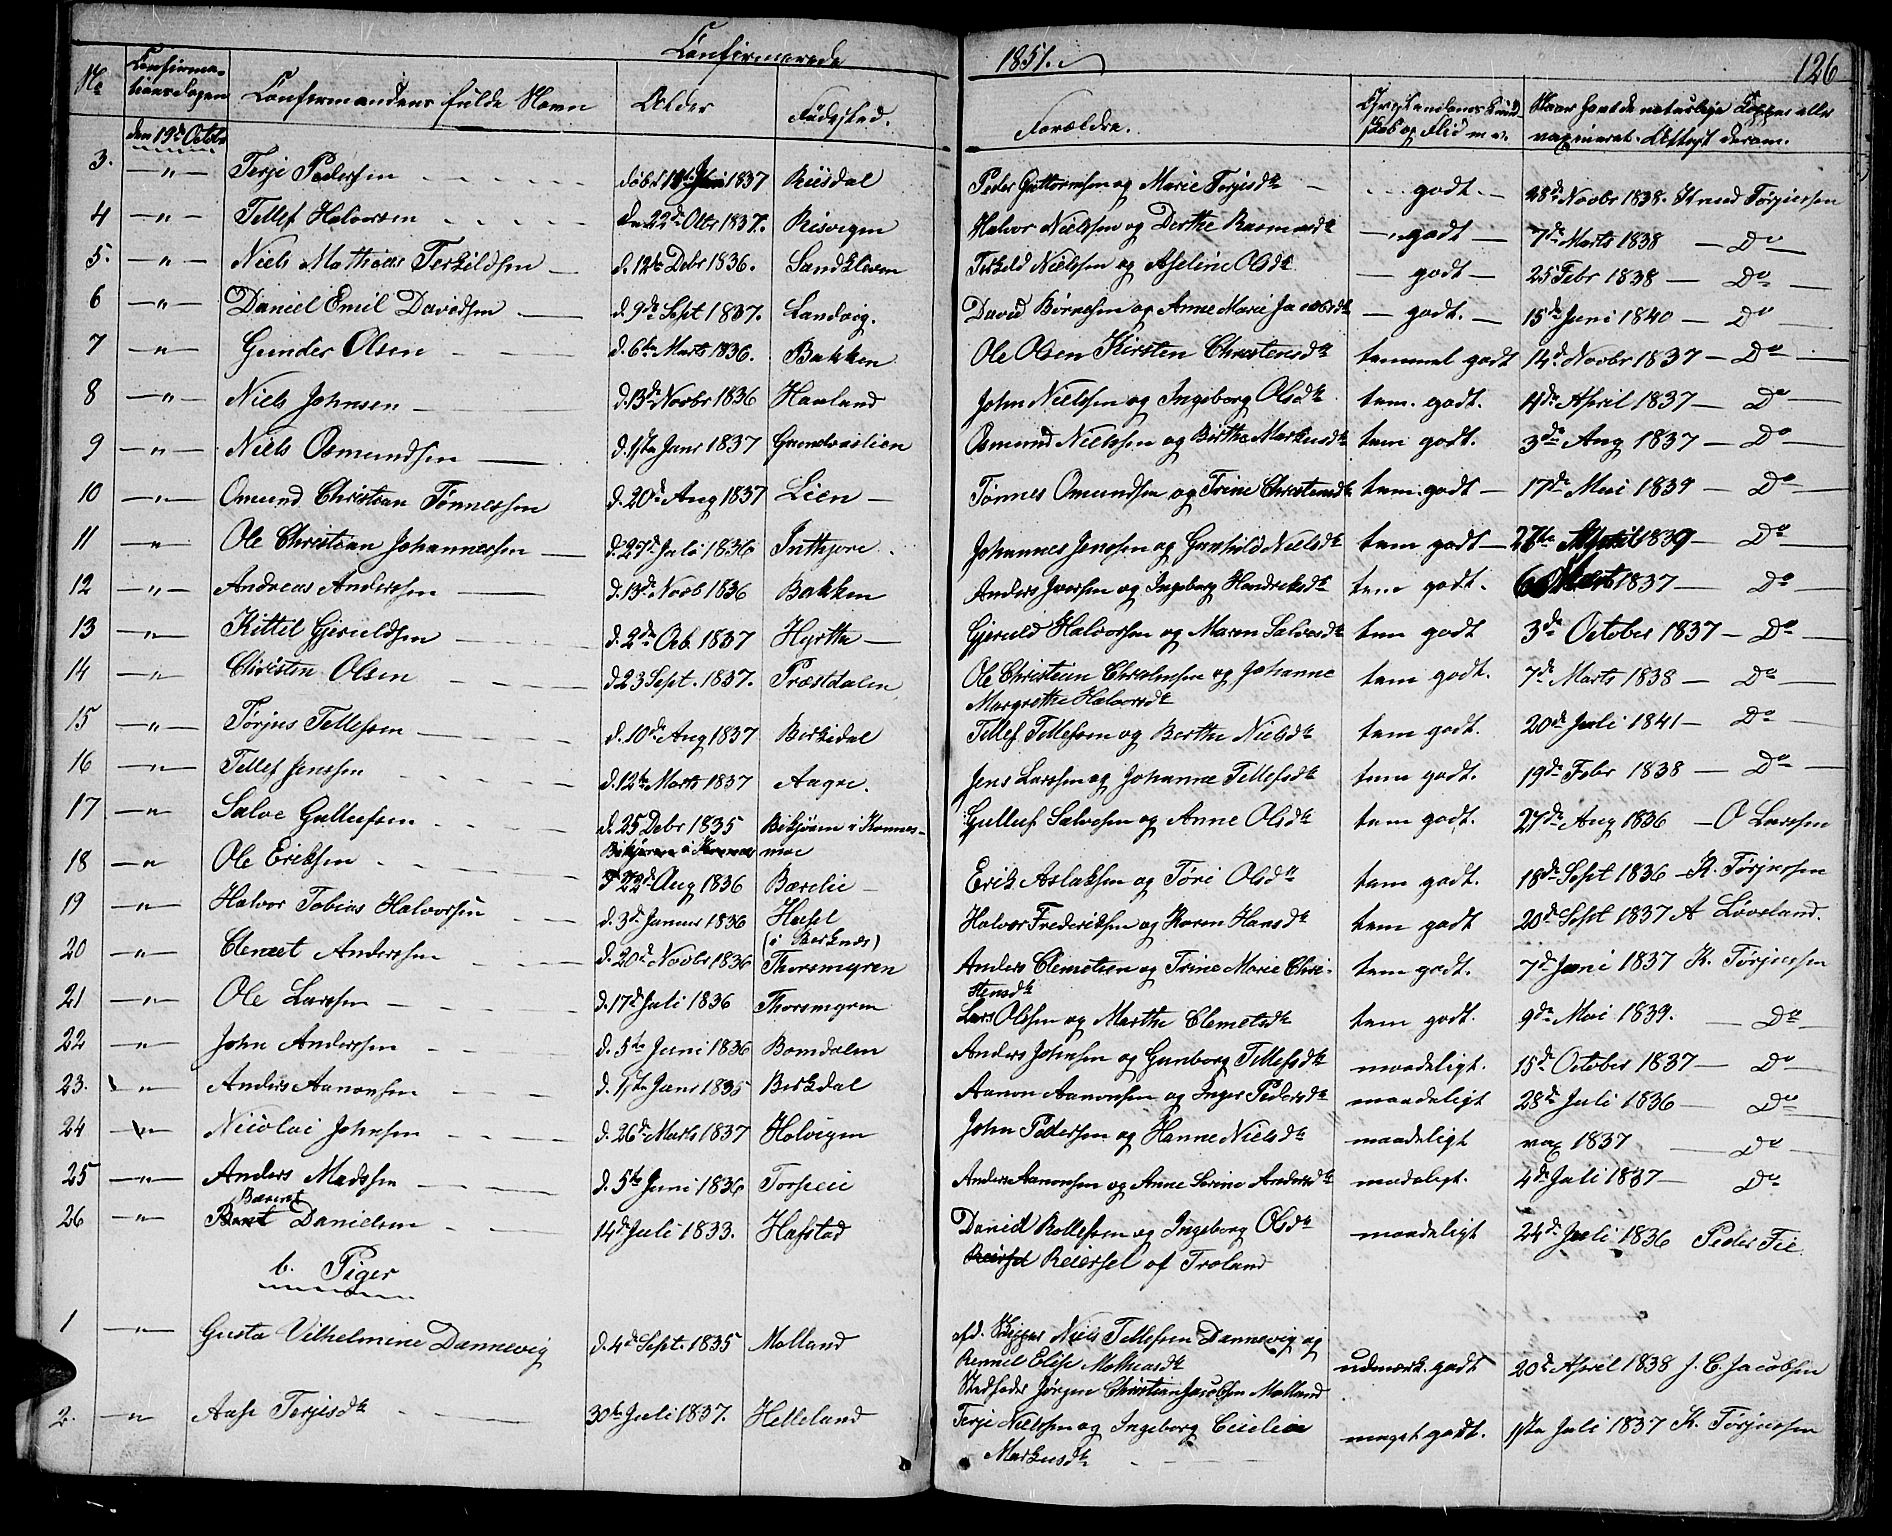 Confirmerede 1851. 126
No Confirma-tions Dagen Confirmandens fulde Navn Alder Fødested. Forældre. Christendoms Kund-skab og Flid m.v. Naar havde naturlige Kopper eller vaxineret. Attest derom.
den 19de Octbr
3. -"- Terje Pedersen døbt 1837 Riisdal Peder Guttormsen og Marie Terjesdtr godt - 28de Novbr 1838. Knud Tørjussen
4 -"- Tellef Halvorsen d. 22de Otbr 1837. Risvigen Halvor Nielsen og Dorthe Rasmusdtr godt - 7de Marts 1838 - Do -
5. -"- Niels Mathias Terkildsen d. 12te Debr 1836. Sandkleven Terkild Nielsen og Aseline Olsdtr - godt - 25 Febr 1838 - Do -
6 -"- Daniel Emil Davidsen d. 9de Sept 1837. Landvig. David Børresen og Anne Marie Jacobsdtr - godt. - 15de Juni 1840 - Do
7 -"- Gunder Olsen d. 6te Marts 1836. Bakken Ole Olsen Kirsten Christensdtr temmel godt 14de Novbr 1837 - Do -
8 -"- Niels Johnsen d. 13de Novbr 1836 Havland John Nielsen og Ingeborg Olsdtr tem. godt. 4de April 1837 - Do -
9 -"- Niels Osmundsen d. 1ste Janr 1837 Osmund Nielsen og Birthe Markusdtr tem godt. 3de Aug 1837 - Do -
10 -"- Omund Christian Tønnessen d. 20de Aug 1837 Lien - Tønnes Omundsen og Trine Christensdtr tem. godt - 17de Mai 1839 - Do -
11 -"- Ole Christian Johannessen d. 27de Juli 1836 Inthjore Johannes Jensen og Gunhild Nielsdtr tem godt - 27te April 1839 - Do -
12 -"- Andreas Andersen d. 13de Novb 1836 Bakken Anders Iversen og Ingeborg Hendriksdtr tem godt. 6 Marts 1837 - Do
13 -"- Kittil Gjeruldsen d. 2de Octb. 1837 Hyrthe - Gjeruld Halvorsen og Maren Salvesdtr tem godt 3de October 1837 - Do -
14 -"- Christen Olsen d 23 Sept. 1837. Præstdalen Ole Christian Christensen og Johanne Margrethe Halvorsdtr tem godt. 7de Marts 1838 - Do -
15 -"- Tørjus Tellefsen d. 10de Aug 1837 Birkedal Tellef Tellefsen og Berthe Nielsdtr tem godt. 20de Juli 1841 - Do -
16 -"- Tellef Jensen d. 12te Marts 1837 Aagre. Jens Larsen og Johanne Tellefsdtr tem godt. 19de Febr 1838 - Do -
17 -"- Salve Gullufsen d. 25 Debr 1835 Bikjøren i Konnes-moe Gulluf Salvesen og Anne Olsdtr tem godt. 27de Aug 1836 - O Larsen
18 -"- Ole Eriksen d 22de Aug 1836 Bærelie - Erik Aslaksen og Tøri Olsdtr tem godt. 18de Sept 1836 - K. Tørjussen
19 -"- Halvor Tobias Halvorsen d. 3de Januar 1836 Hasel (i Birknes) Halvor Frederiksen og Karen Hansdtr tem godt 20de Sept 1837 A Løvsland.
20 -"- Clemet Andersen d. 20de Novbr 1836 Thorsmyren Anders Clemetsen og Trine Marie Chri-stensdtr tem godt. 7de Juni 1837 K. Tørjussen
21 -"- Ole Larsen d. 17de Juli 1836 Thorsmyren Lars Olsen og Marthe Clemetsdtr tem godt. 9de Mai 1839. - Do
22 -"- John Andersen d. 5te Juni 1836 Bomdalen Anders Johnsen og Gunborg Tellefsdtr maadeligt. 15de October 1837 - Do -
23. -"- Anders Aanonsen d. 1ste Janr 1835 Birkdal Aanon Aanonsen og Inger Pedersdtr maadeligt 28de Juli 1836 - Do -
24 -"- Nicolai Johnsen d. 26de Marts 1837 Holvigen John Pedersen og Hanne Nielsdtr maadeligt vax 1837 - Do -
25 -"- Anders Madsen d. 5te Juni 1836 Torpeie Anders Aanonsen og Anne Serine Andersdtr madeligt. 4de Juli 1837 - Do
26 -"- Bærent Danielsen 14de Juli 1833. Hafstad Daniel Rollefsen og Ingeborg Olsdtr Reiersel af Troland maadeligt 24de Juli 1836 Peder Fie
b. Piger
1 -"- Gusta Vilhelmine Dannevig d. 4de Sept. 1835 Molland afd. Skipper Niels Tellefsen Dannevig og Rennel Elise Mathiasdtr Stedfader Jørgen Christian Jacobsen Molland udmærk. godt 20de April 1838 J. C. Jacobsen
2. -"- Aase Terjesdtr 30te Juli 1837. Helleland Terje Nielsen og Ingeborg Cecilia Markusdtr meget godt. 1ste Juli 1837 K. Tørjussen